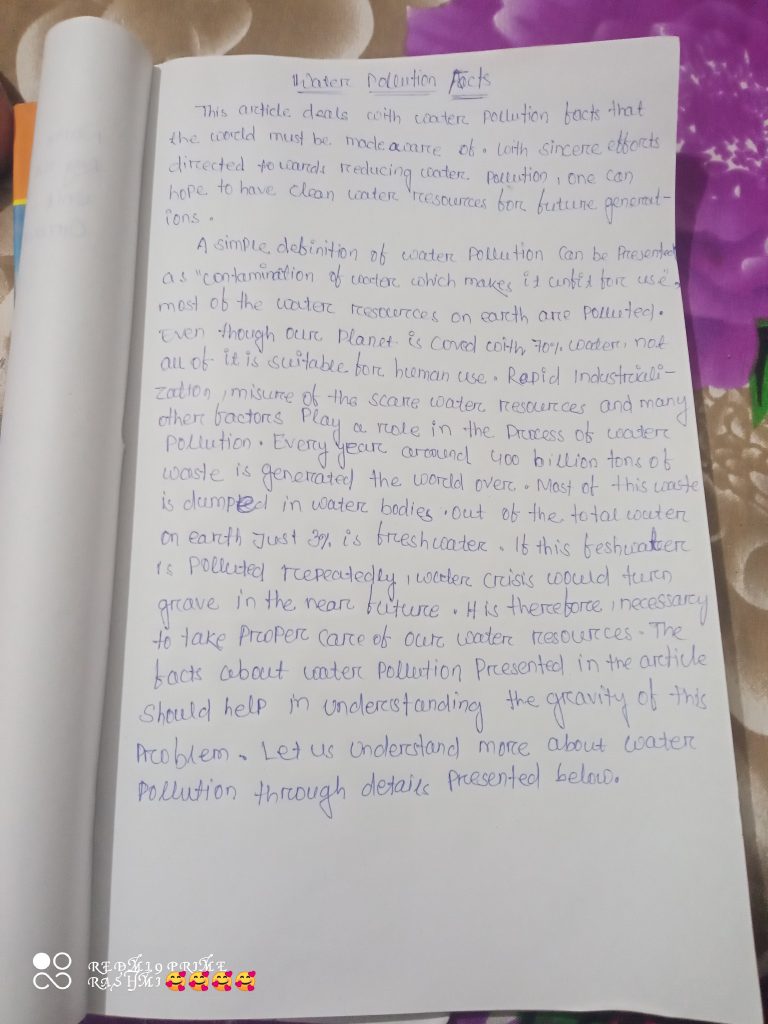 Water Pollution Facts
This article deals with water pollution facts that
the world must be made aware of. With sincere efforts
directed towards reducing water. Pollution, one can
hope to have clean water resources for future generat-
ions.
A simple definition of water Pollution can be Presented
as "contamination of water which makes it unfit for use".
most of the water resources on earth are Polluted.
Even though our Planet is coved with 70% water, not
all of it is suitable for human use. Rapid Industriali-
zation, misure of the scare water resources and many
other factors Play a role in the Process of water
Pollution. Every year around 400 billion tons of
waste is generated the world over. Most of this waste
is dumped in water bodies. out of the total water
on earth Just 3% is freshwater. If this feshwater
is Polluted repeatedly, water crisis would turn
grave in the near future. It is therefore, necessary
to take Proper care of our water resources. The
facts about water Pollution Presented in the article
Should help in understanding the gravity of this
Problem. Let us understand more about water
Pollution through details Presented below.
REDMI 9 PRIME
RASHMI 🥰🥰🥰🥰